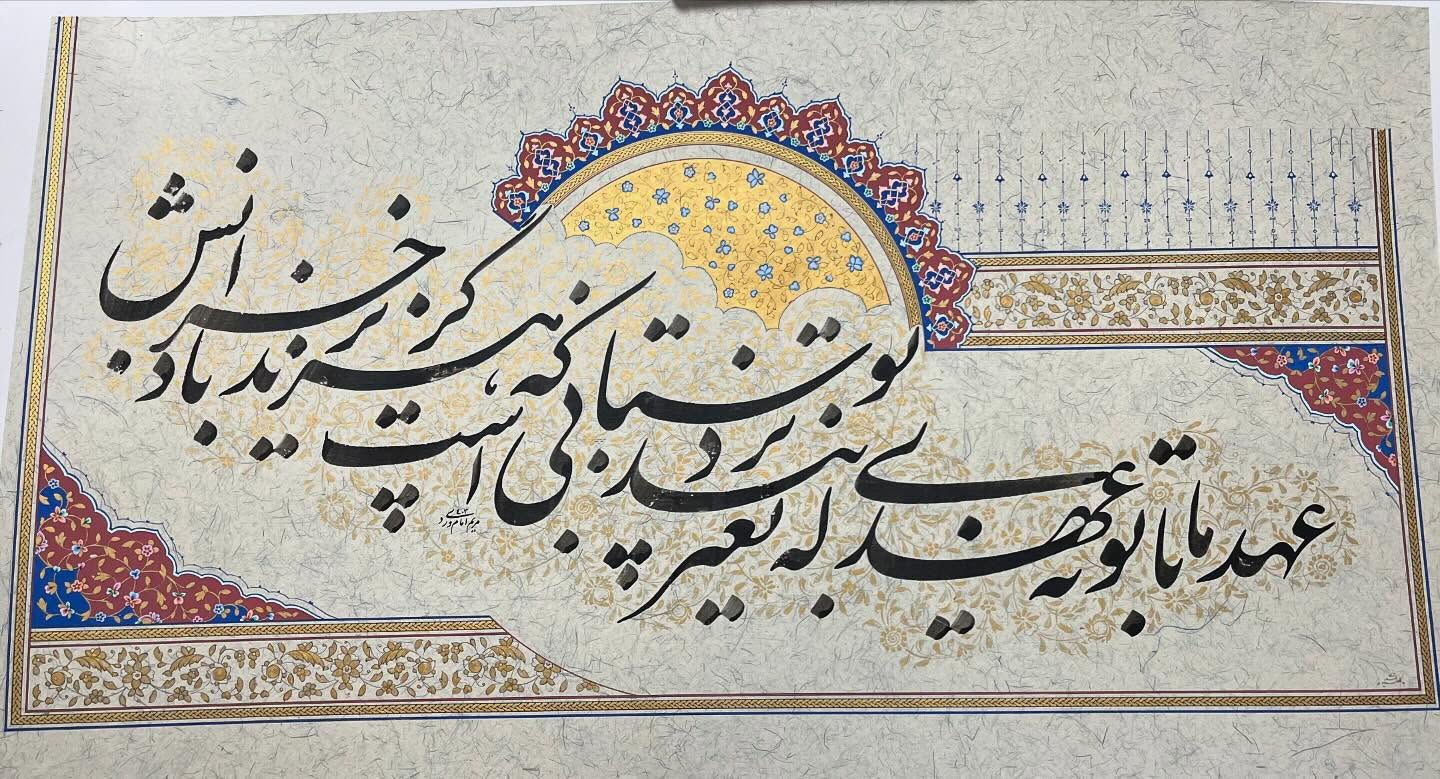 عهد ما با تو نه عهدی که تغیر بپذیرد
بوستانی است که هرگز نزند باد خزانش
مریم امام وردی